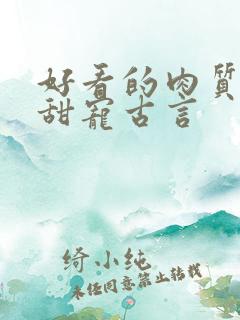 好看的肉质
甜宠古言
绮小纯
未经同意禁止转载